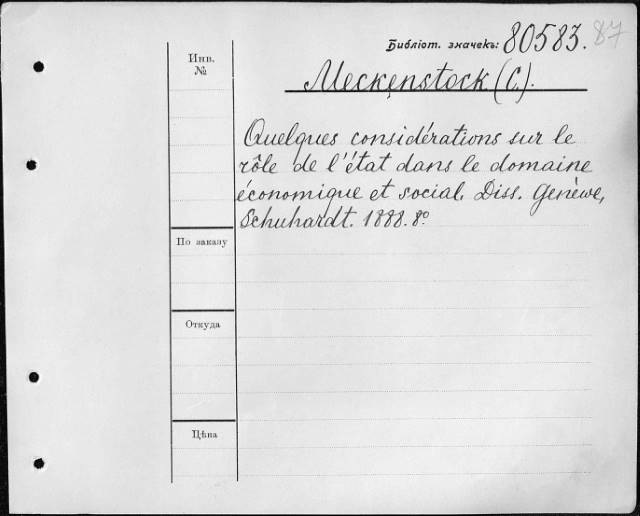 Библіот. значекъ: 80583. 87
Инв. №
Meckenstock (C.).
Quelques considérations sur le
rôle de l'état dans le domaine
économique et social. Diss. Genèwe,
Schuhardt. 1888. 8º
По заказу
Откуда
Цѣна